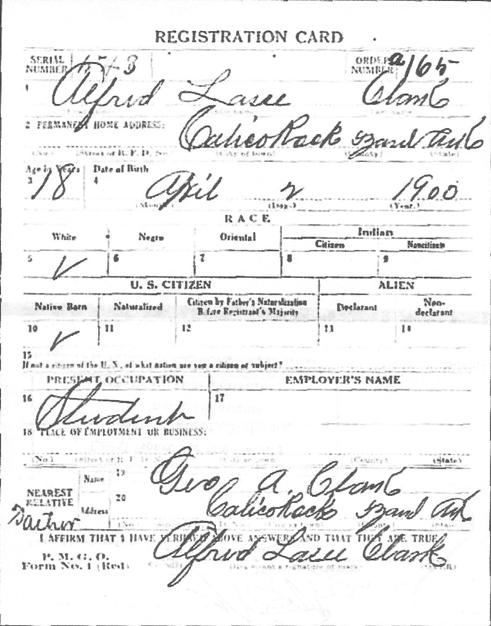 REGISTRATION CARD
SERIAL NUMBER ORDER NUMBER a165
1 Alfred Clark
2 PERMANENT HOME ADDRESS: Calico Rock Izard Ark
(No.) (Street or R. F. D. No.) (City or town) (County) (State)
Age in Years Date of Birth
3 18 4 April 2 1900
(Month) (Day) (Year)
RACE
White Negro Oriental Indian
Citizen Noncitizen
5 ✓ 6 7 8 9
U. S. CITIZEN ALIEN
Native Born Naturalized Citizen by Father's Naturalization Before Registrant's Majority Declarant Non-declarant
10 ✓ 11 12 13 14
15
If not a citizen of the U. S., of what nation are you a citizen or subject?
PRESENT OCCUPATION EMPLOYER'S NAME
16 Student 17
18 PLACE OF EMPLOYMENT OR BUSINESS:
(No.) (County) (State)
NEAREST RELATIVE Name 19 Geo A. Clark
Father Address 20 Calico Rock Izard Ark
I AFFIRM THAT I HAVE VERIFIED ABOVE ANSWERS AND THAT THEY ARE TRUE
P. M. G. O.
Form No. 1 (Red) Alfred Clark